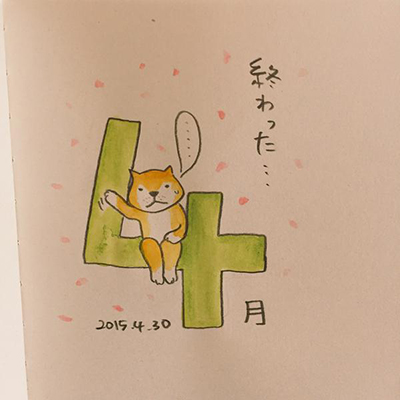 終わった…
……
4月
2015.4.30